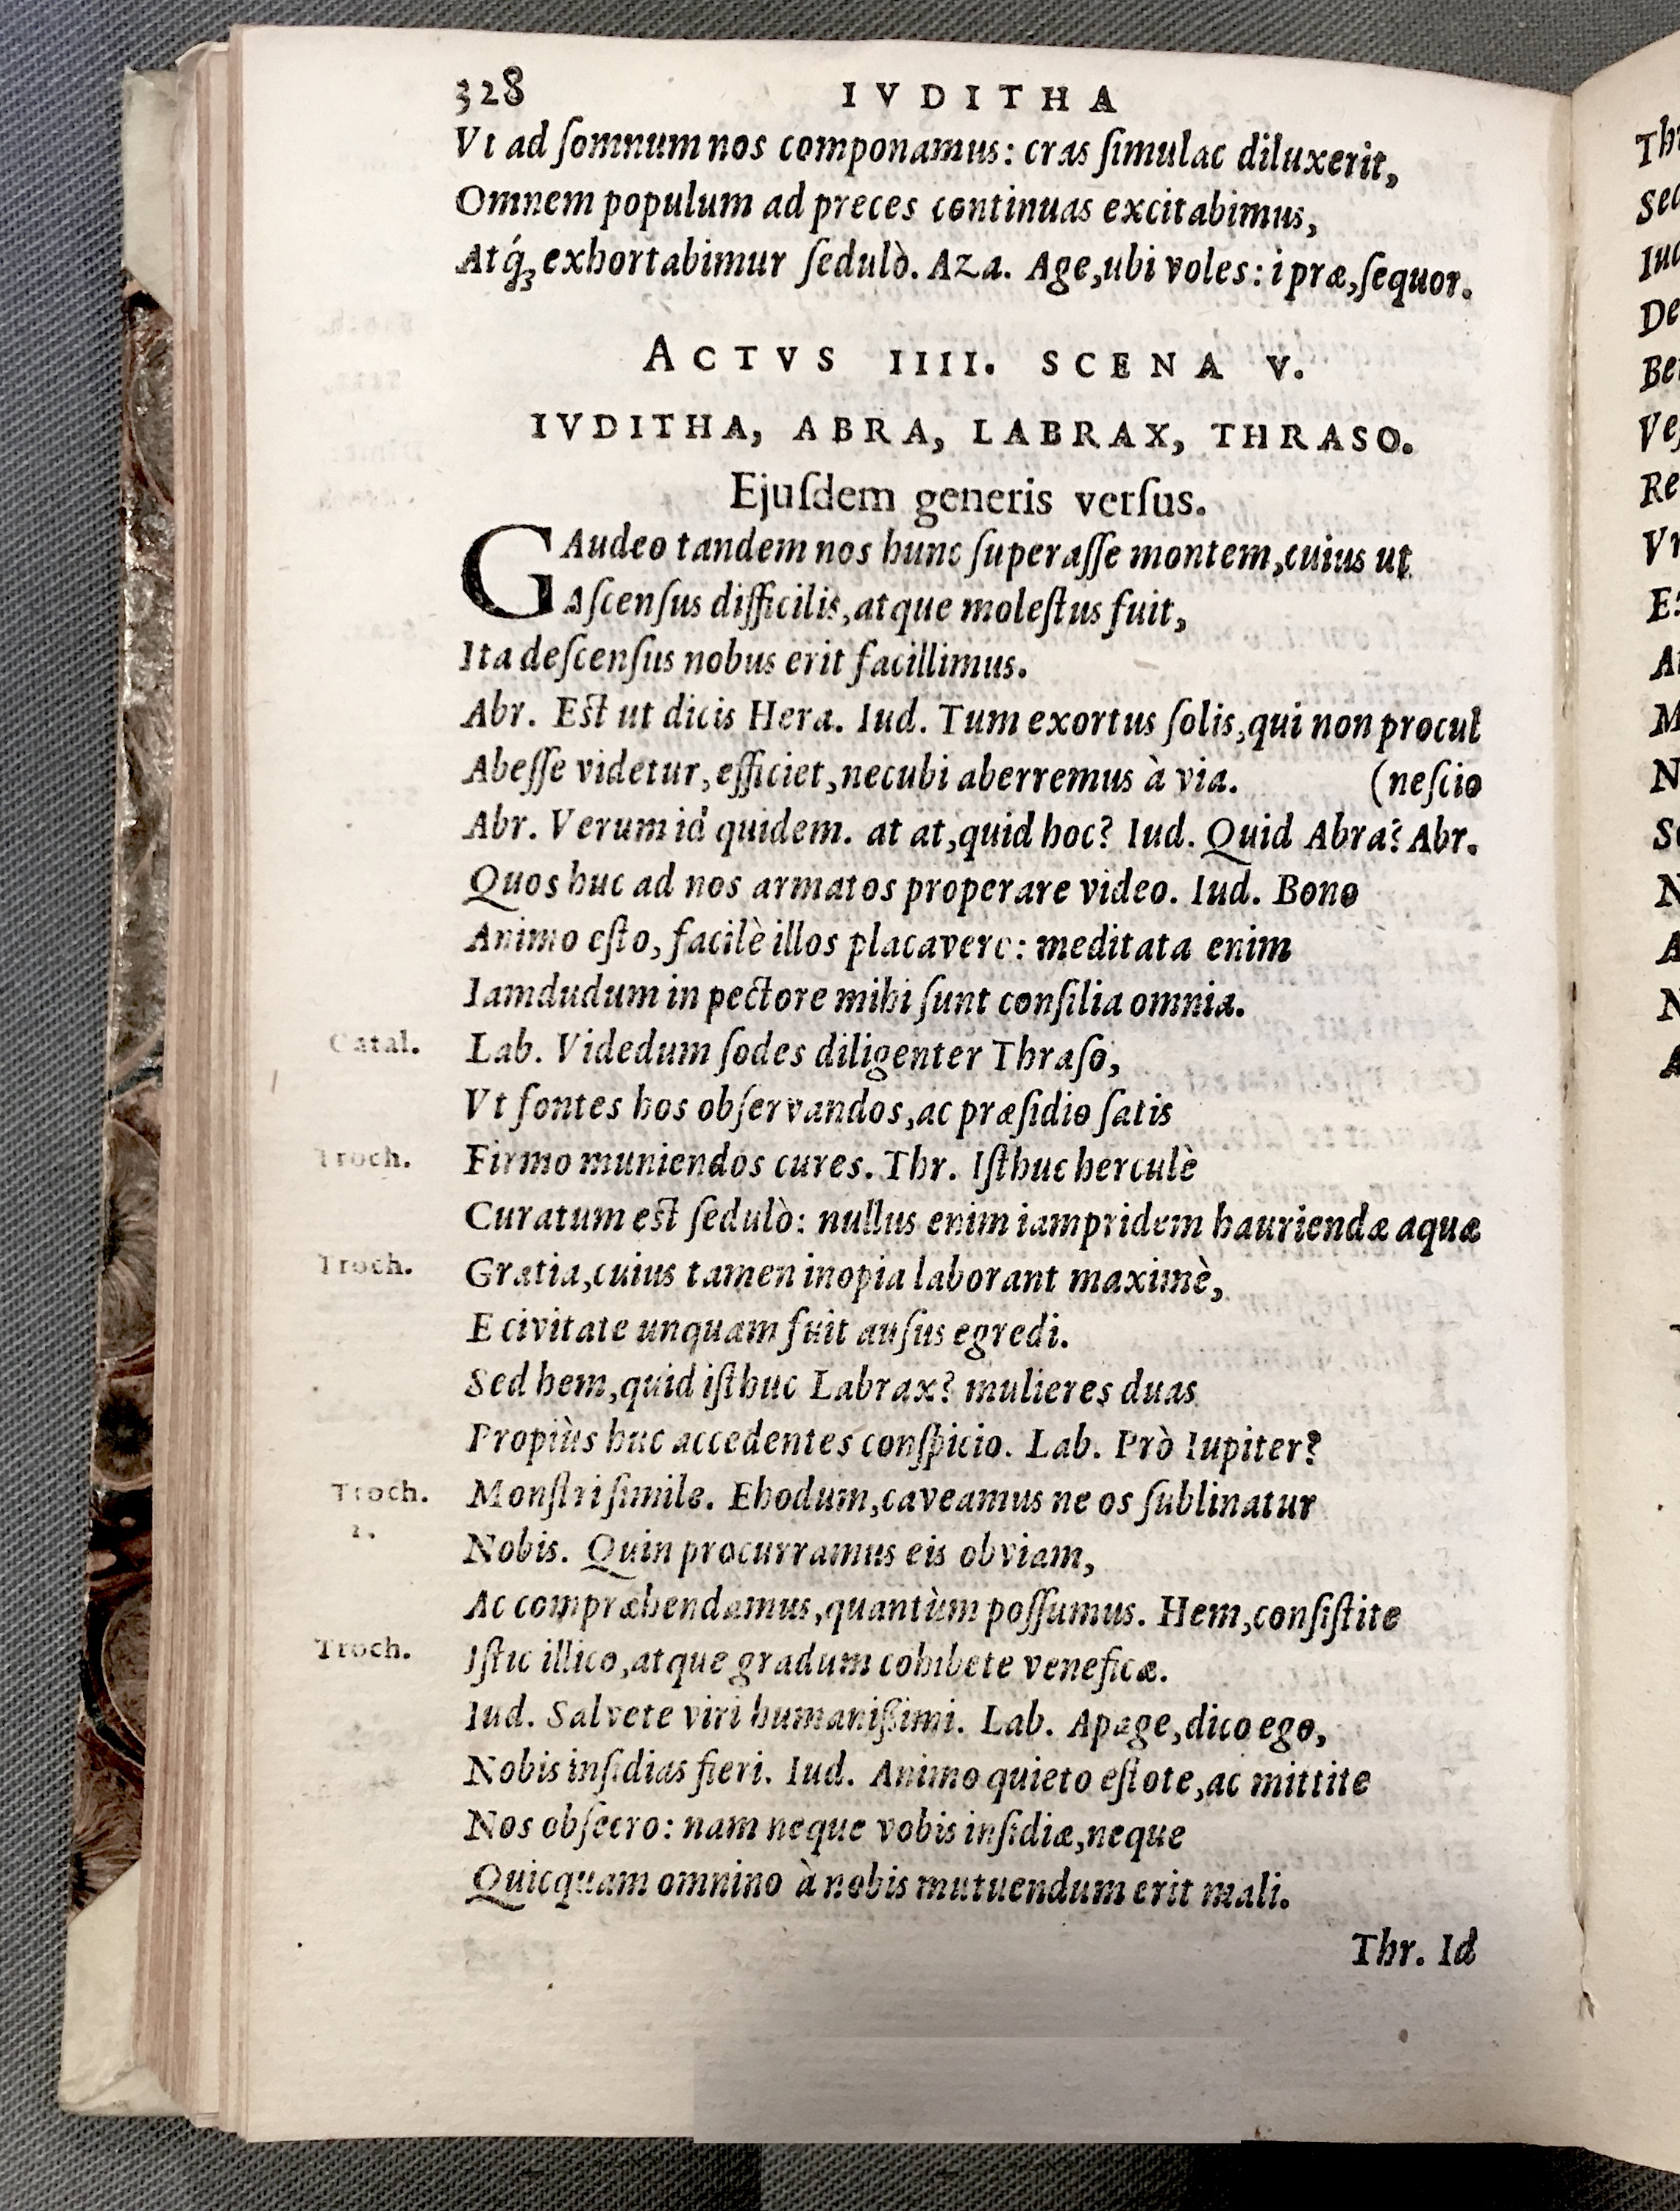 328 IVDITHA
Vt ad ſomnum nos componamus: cras ſimulac diluxerit,
Omnem populum ad preces continuas excitabimus,
Atq́ꝫ exhortabimur ſedulò. Aza. Age, ubi voles: i præ, ſequor.
ACTVS IIII. SCENA V.
IVDITHA, ABRA, LABRAX, THRASO.
Ejuſdem generis verſus.
GAudeo tandem nos hunc ſuperaſſe montem, cuius ut
Aſcenſus difficilis, atque moleſtus fuit,
Ita deſcenſus nobus erit facillimus.
Abr. Eſt ut dicis Hera. Iud. Tum exortus ſolis, qui non procul
Abeſſe videtur, efficiet, necubi aberremus à via. (neſcio
Abr. Verum id quidem. at at, quid hoc? Iud. Quid Abra? Abr.
Quos huc ad nos armatos properare video. Iud. Bono
Animo eſto, facilè illos placavero: meditata enim
Iamdudum in pectore mihi ſunt conſilia omnia.
Catal. Lab. Videdum ſodes diligenter Thraſo,
Vt fontes hos obſervandos, ac præſidio ſatis
Troch. Firmo muniendos cures. Thr. Iſthuc herculè
Curatum eſt ſedulò: nullus enim iampridem hauriendæ aquæ
Troch. Gratia, cuius tamen inopia laborant maximè,
E civitate unquam fuit auſus egredi.
Sed hem, quid iſthuc Labrax? mulieres duas
Propiùs huc accedentes conſpicio. Lab. Prò Iupiter?
Troch. Monſtri ſimile. Ehodum, caveamus ne os ſublinatur
2. Nobis. Quin procurramus eis obviam,
Ac compræhendamus, quantùm poſſumus. Hem, conſiſtite
Troch. Iſtic illico, atque gradum cohibete veneficæ.
Iud. Salvete viri humanißimi. Lab. Apage, dico ego,
Nobis inſidias fieri. Iud. Animo quieto eſtote, ac mittite
Nos obſecro: nam neque vobis inſidiæ, neque
Quicquam omnino à nobis mutuendum erit mali.
Thr. Id